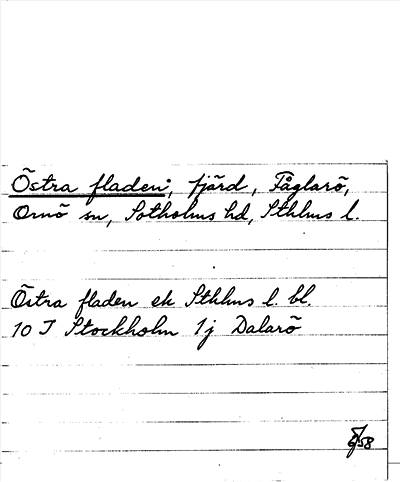 Östra fladen, fjärd, Fåglarö,
Ornö sn, Sotholms hd, Sthlms l.
Östra fladen ek Sthlms l. bl.
10 I Stockholm 1j Dalarö
58